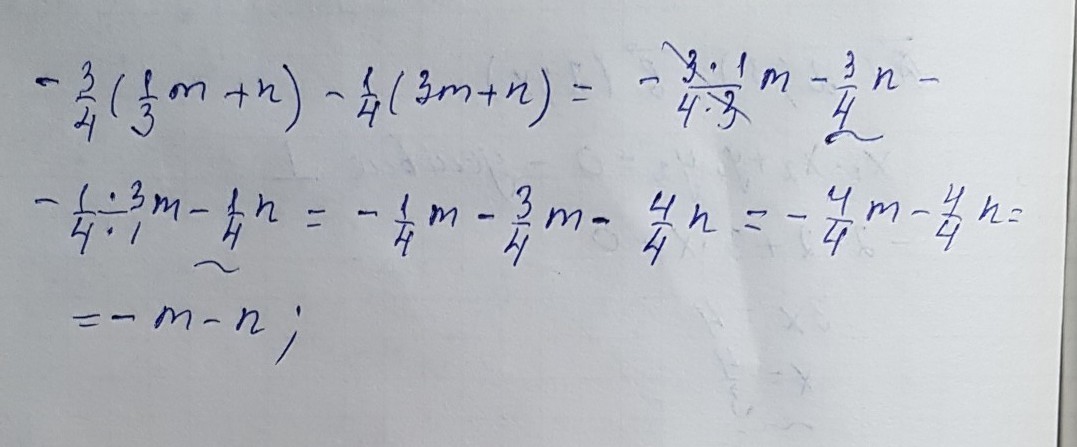 - 3/4 (1/3 m + n) - 1/4 (3m + n) = - 3·1/4·3 m - 3/4 n -
- 1·3/4·1 m - 1/4 n = - 1/4 m - 3/4 m - 4/4 n = - 4/4 m - 4/4 n =
= - m - n ;